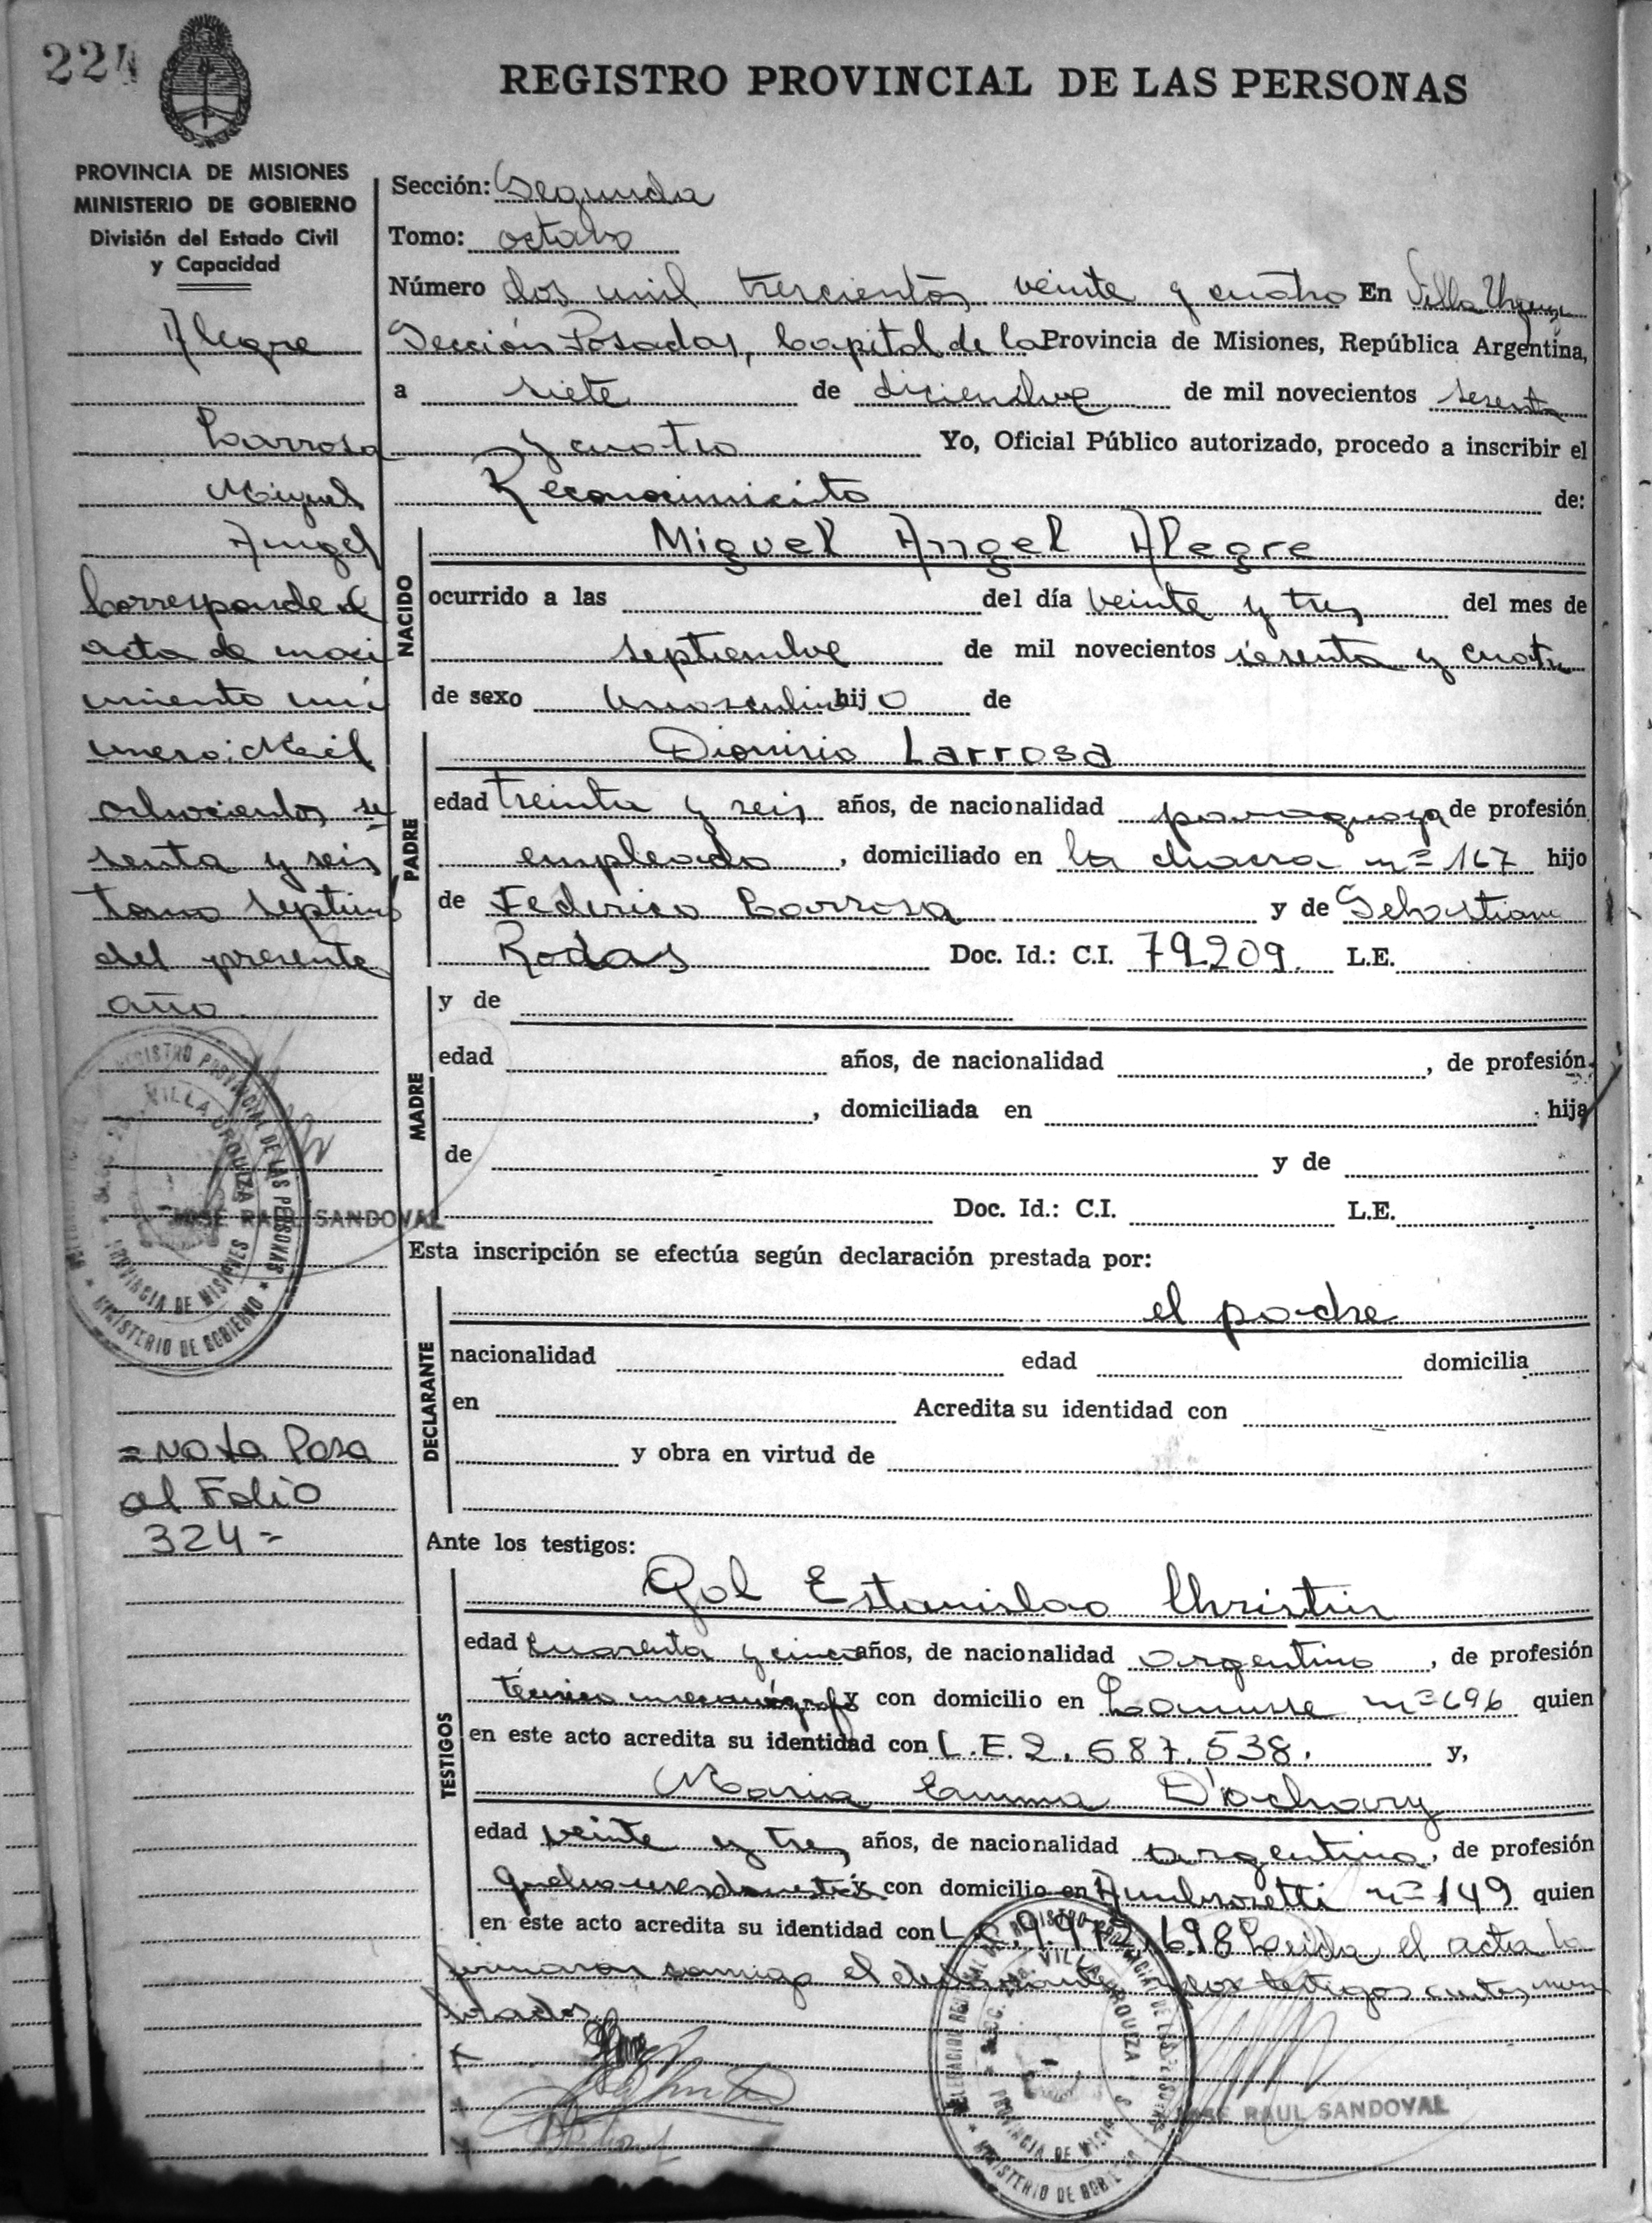 224
REGISTRO PROVINCIAL DE LAS PERSONAS
PROVINCIA DE MISIONES
MINISTERIO DE GOBIERNO
División del Estado Civil
y Capacidad
Alegre
Larrosa
Miguel
Angel
Corresponde al
acta de naci
miento nú
mero: Mil
ochocientos se
senta y seis
tomo septimo
del presente
año.
REGISTRO PROVINCIAL DE LAS PERSONAS
SECC. 2da. VILLA URQUIZA
PROVINCIA DE MISIONES
MINISTERIO DE GOBIERNO
JOSE RAUL SANDOVAL
= Nota Pasa
al Folio
324 =
Sección: Segunda
Tomo: octavo
Número dos mil trescientos veinte y cuatro En Villa Urquiza
Sección Posadas, Capital de la Provincia de Misiones, República Argentina,
a siete de diciembre de mil novecientos sesenta
y cuatro Yo, Oficial Público autorizado, procedo a inscribir el
Reconocimiento de:
NACIDO
Miguel Angel Alegre
ocurrido a las del día veinte y tres del mes de
septiembre de mil novecientos sesenta y cuatro
de sexo masculino hij o de
PADRE
Dionisio Larrosa
edad treinta y seis años, de nacionalidad paraguaya de profesión
empleado, domiciliado en la chacra nº 167 hijo
de Federico Larrosa y de Sebastiana
Rodas Doc. Id.: C.I. 79.209. L.E.
MADRE
y de
edad años, de nacionalidad , de profesión
, domiciliada en hija
de y de
Doc. Id.: C.I. L.E.
Esta inscripción se efectúa según declaración prestada por:
DECLARANTE
el padre
nacionalidad edad domicilia
en Acredita su identidad con
y obra en virtud de
Ante los testigos:
TESTIGOS
Gol Estanislao Christin
edad cuarenta y cinco años, de nacionalidad argentino, de profesión
técnico mecanógrafo y con domicilio en Lanusse nº 696 quien
en este acto acredita su identidad con L.E. 2.687.538. y,
Maria Emma D'ochary
edad veinte y tres años, de nacionalidad argentina, de profesión
quehaceres domesticos y con domicilio en Ambrosetti nº 149 quien
en este acto acredita su identidad con L.C. 9.972.698 Leida el acta la
firmaron conmigo el declarante y los testigos antes nom
brados
REGISTRO PROVINCIAL DE LAS PERSONAS
SECC. 2da. VILLA URQUIZA
PROVINCIA DE MISIONES
MINISTERIO DE GOBIERNO
JOSE RAUL SANDOVAL